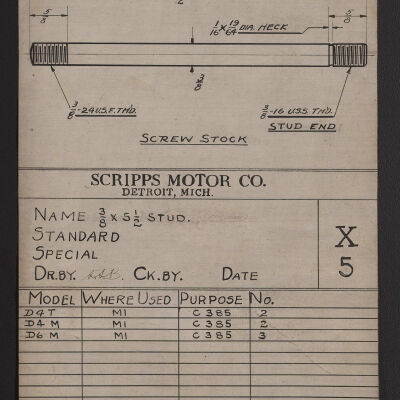 2
5/8
1/16 X 19/64 DIA. NECK
5/8
3/8
3/8-24 U.S.F. TH'D.
3/8-16 U.S.S. TH'D.
STUD END
SCREW STOCK
SCRIPPS MOTOR CO.
DETROIT, MICH.
NAME 3/8 X 5 1/2 STUD.
STANDARD
SPECIAL
X
5
DR.BY. CK.BY. DATE
MODEL WHERE USED PURPOSE NO.
D4T MI C385 2
D4M MI C385 2
D6M MI C385 3